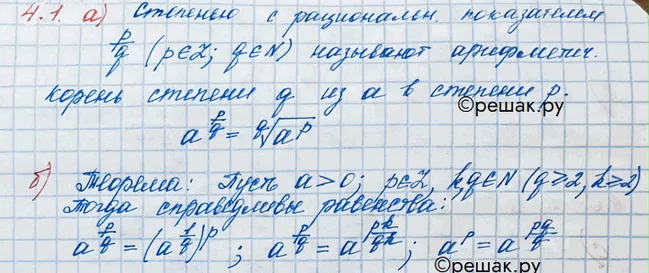 4.1. а) Степенью с рациональн. показателем
p/q (p∈Z; q∈N) называют арифметич.
корень степени q из a в степени p.
©решак.ру
a^(p/q) = ^q√(a^p)
©решак.ру
б) Теорема: Пусть a>0; p∈Z, k,q∈N (q≥2, k≥2)
Тогда справедливы равенства:
a^(p/q) = (a^(1/q))^p ; a^(p/q) = a^(pk/qk) ; a^p = a^(pq/q)